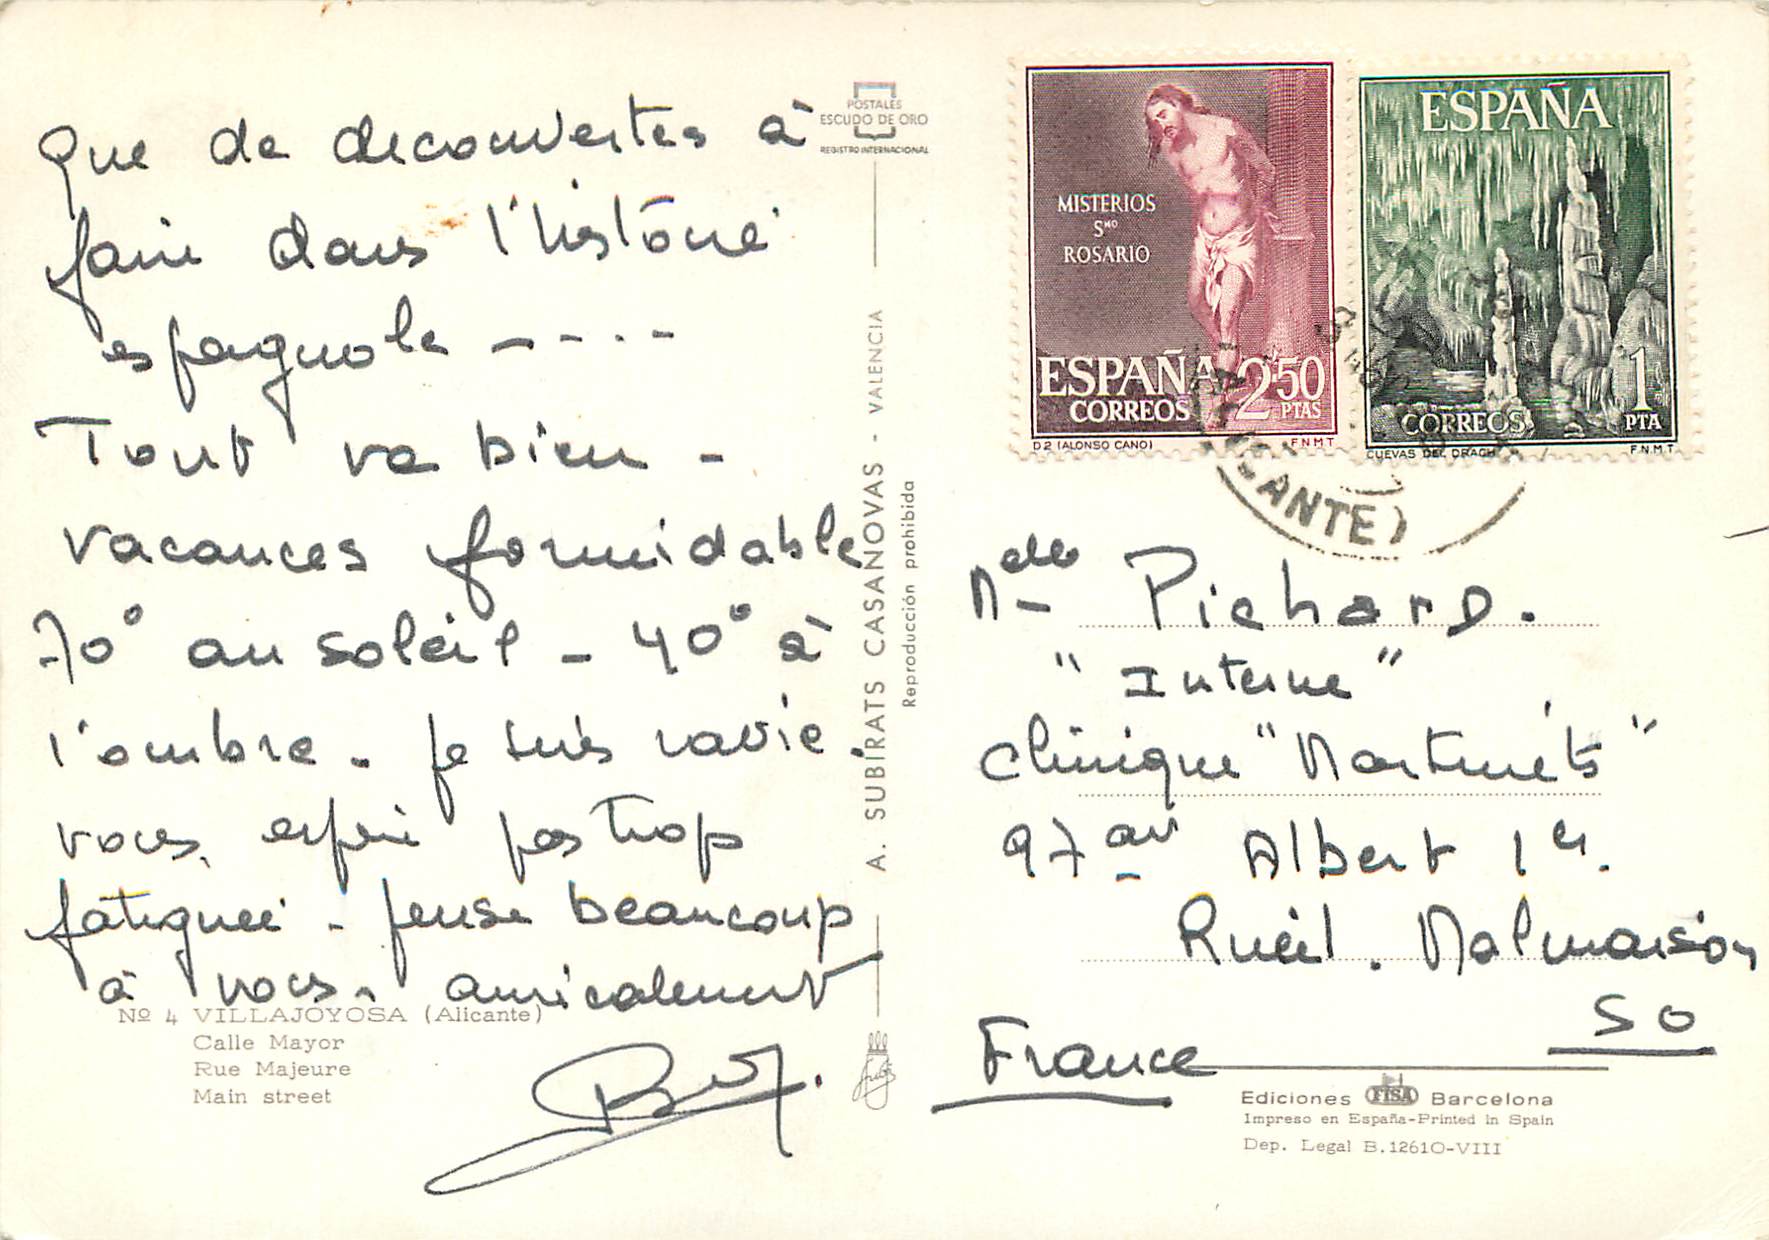 Que de decouvertes à
faire dans l'histoire
espagnole - - - -
Tout va bien -
vacances formidable
70° au soleil - 40° à
l'ombre. Je suis ravie.
vous, espère pas trop
fatiguée - pense beaucoup
à vous. amicalement
Nº 4 VILLAJOYOSA (Alicante)
Calle Mayor
Rue Majeure
Main street
POSTALES
ESCUDO DE ORO
REGISTRO INTERNACIONAL
A. SUBIRATS CASANOVAS - VALENCIA
Reproducción prohibida
MISTERIOS
Sᴹᴼ
ROSARIO
ESPAÑA
CORREOS
2'50
PTAS
D 2 (ALONSO CANO)
F N M T
ESPAÑA
CORREOS
1
PTA
CUEVAS DEL DRACH
F.N.M.T
(ALICANTE)
Melle Pichard.
"Interne"
Clinique "Martinets"
97 av Albert 1er.
Rueil. Malmaison
S O
France
Ediciones FISA Barcelona
Impreso en España-Printed in Spain
Dep. Legal B.12610-VIII